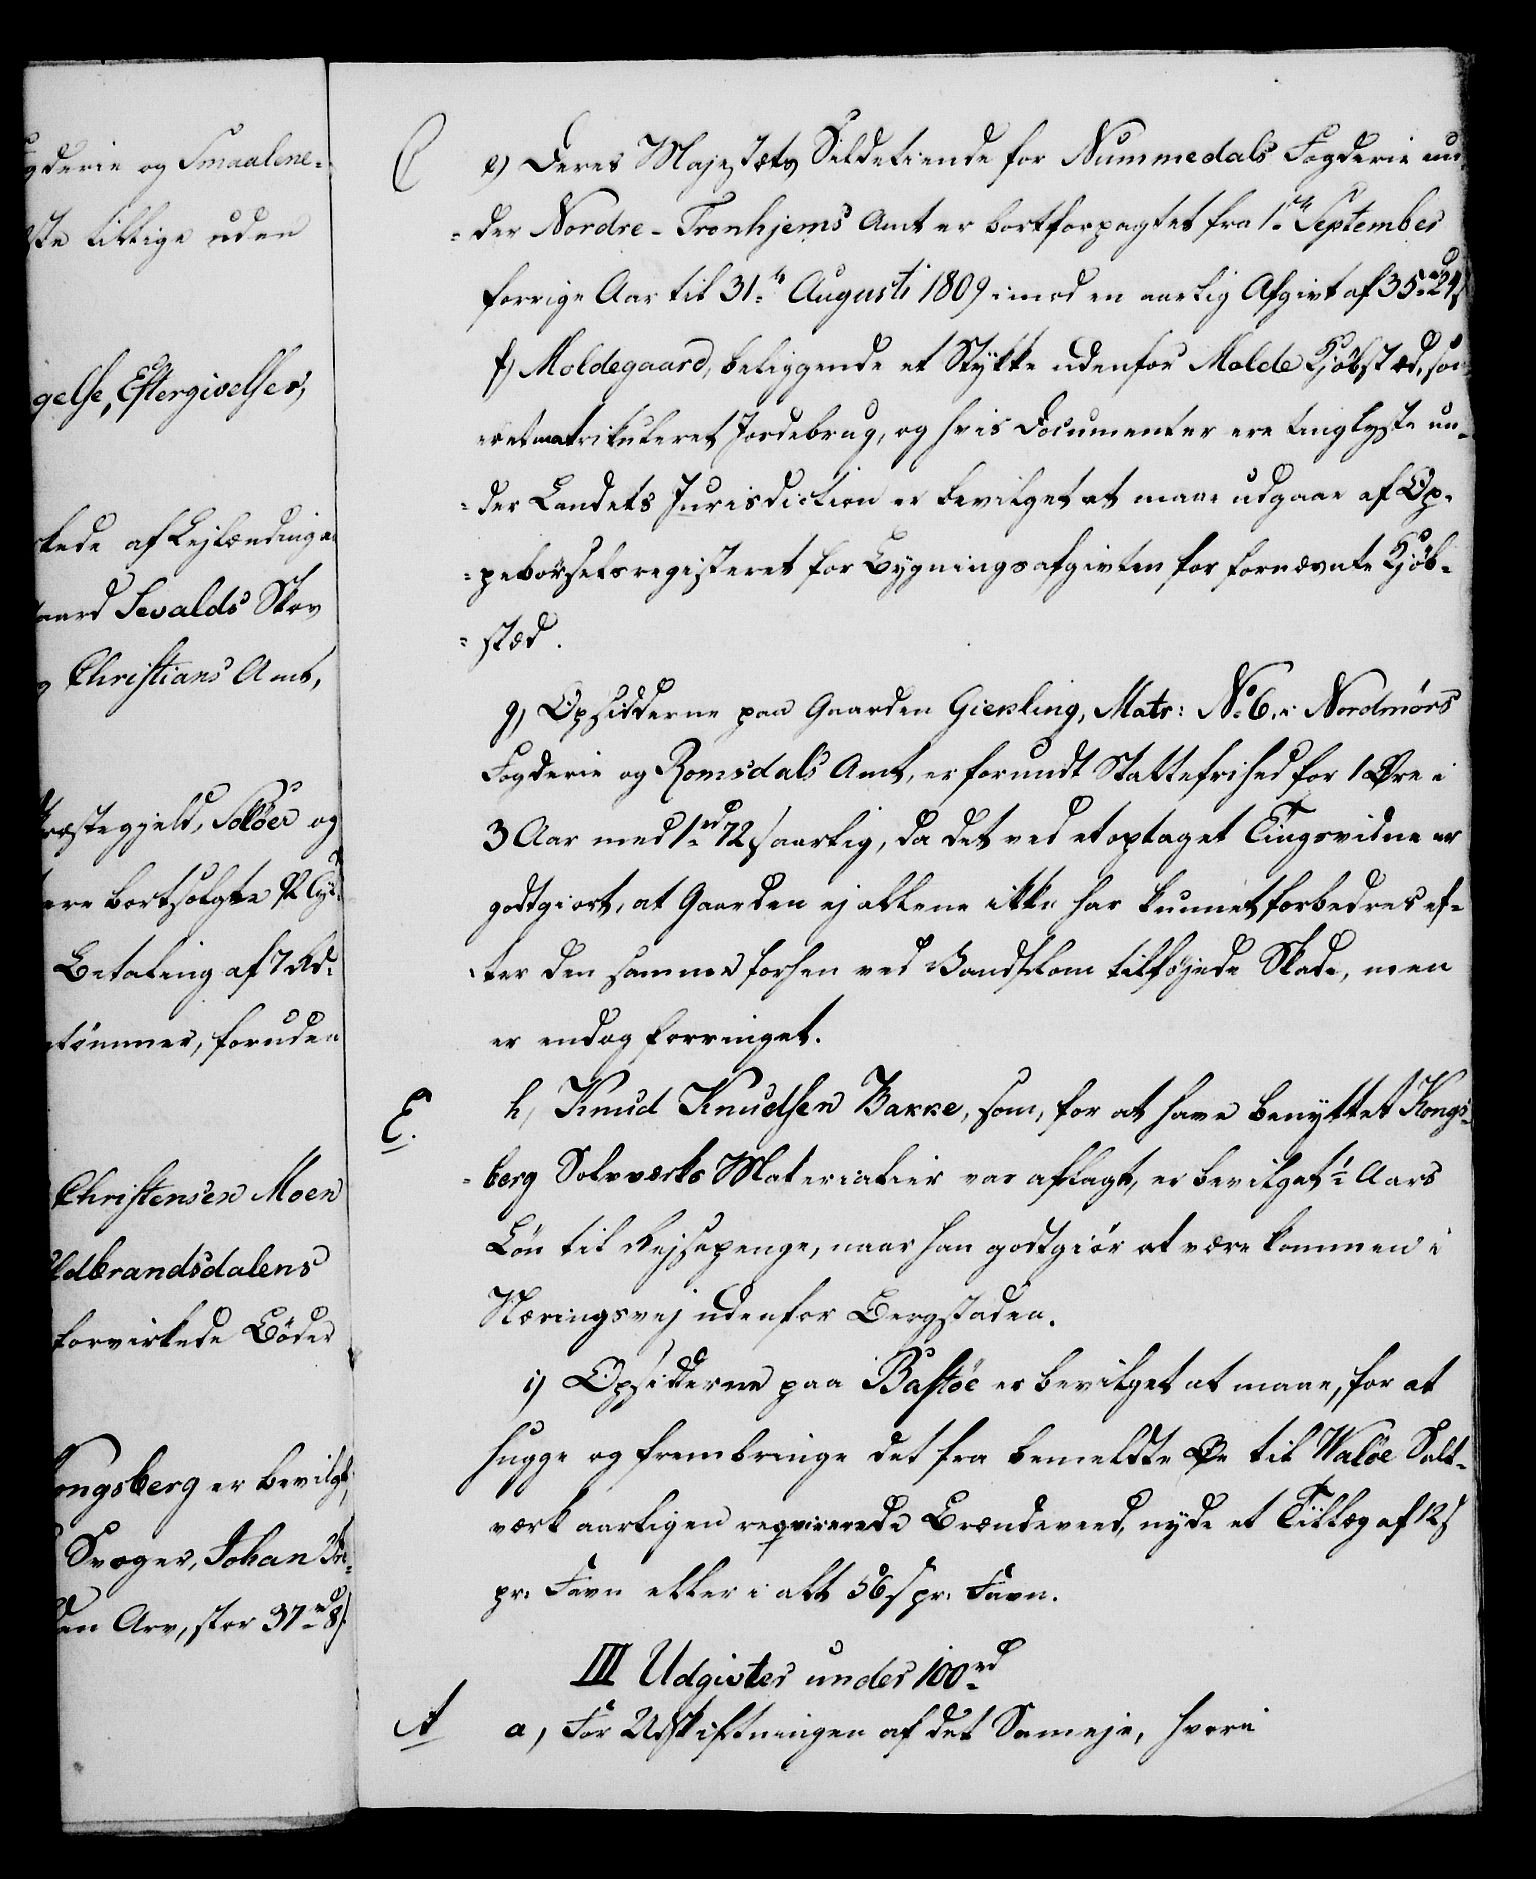 gderie og Smaalene-
ste tillige uden
gelse, Eftergivelser,
kede af Lejlændinge
aard Sevalds Skov
Christians Amt,
Præstegjeld, Soløer og
ere bortsolgte
Betaling af 7 Rd:
tømmer, foruden
Christensen Moen
ldbrandsdalens
forvirkede Bøder
ongsberg er bevilgt,
Svoger, Johan
den Arv, stor 37 rd 8 s.
C
e) Deres Majestæts Sildetiende for Nummedals Fogderie un-
-der Nordre-Tronhjems Amt er bortforpagtet fra 1ste September
forrige Aar til 31te Augusti 1809 imod en aarlig Afgivt af 35 rd 24 s
f) Moldegaard, beliggende et Stykke udenfor Molde Kjøbstæd, som
er et matrikuleret Jordebrug, og hvis Documenter ere tinglyste un-
-der Landets Jurisdiction er bevilget at maae udgaae af Op-
-pebørselsregisteret for Bygningsafgivten for fornævnte Kjøb-
-stæd.
g) Opsidderne paa Gaarden Giekling, Matr: No 6. i Nordmørs
Fogderie og Romsdals Amt, er forundt Skattefrihed for 1 Øre i
3 Aar med 1 rd 72 s aarlig, da det ved et optaget Tingsvidne er
godtgiort, at Gaarden ej allene ikke har kunnet forbedres ef-
-ter den samme forhen ved Vandflom tilføjede Skade, men
er endog forringet.
E.
h) Knud Knudsen Bakke, som, for at have benyttet Kongs-
-berg Sølvværks Materialier var aflagt, er bevilget ½ Aars
Løn til Rejsepenge, naar han godtgiør at være kommen i
Næringsvej udenfor Bergstaden.
i) Opsidderne paa Bastøe er bevilget at maae, for at
hugge og frembringe det fra bemeldte Øe til Waløe Salt-
værk aarligen requirerede Brændeveed, nyde et Tillæg af 12 s
pr: Favn eller i alt 56 s pr: Favn.
III Udgivter under 100 rd
A
a) For Udskiftningen af det Sameje, hvori